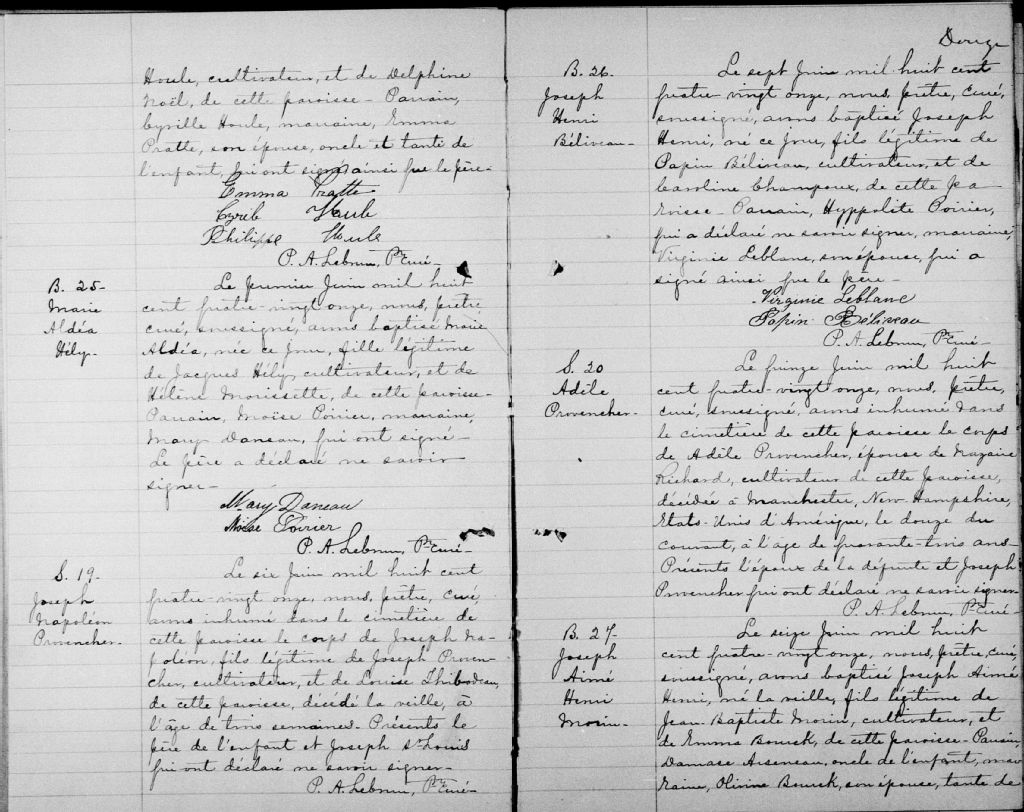 Houle, cultivateur, et de Delphine
Noël, de cette paroisse - Parrain,
Cyrille Houle, marraine, Emma
Pratte, son épouse, oncle et tante de
l'enfant, qui ont signé ainsi que le père -
Emma Pratte
Cyrile Houle
Philippe Houle
P. A. Lebrun, Ptre Curé -
B. 25 -
Marie
Aldéa
Hély -
Le premier Juin mil huit
cent quatre-vingt onze, nous, prêtre,
curé, soussigné, avons baptisé Marie
Aldéa, née ce jour, fille légitime
de Jacques Hély, cultivateur, et de
Hélène Morissette, de cette paroisse -
Parrain, Moïse Poirier, marraine,
Mary Daneau, qui ont signé -
Le père a déclaré ne savoir
signer -
Mary Daneau
Moïse Poirier
P. A. Lebrun, Ptre Curé -
S. 19.
Joseph
Napoléon
Provencher -
Le six Juin mil huit cent
quatre-vingt onze, nous, prêtre, curé,
avons inhumé dans le cimetière de
cette paroisse le corps de Joseph Na-
poléon, fils légitime de Joseph Proven-
cher, cultivateur, et de Louise Thibodeau,
de cette paroisse, décédé la veille, à
l'âge de trois semaines. Présents le
père de l'enfant et Joseph St Louis
qui ont déclaré ne savoir signer -
P. A. Lebrun, Ptre Curé -
Douze
B. 26.
Joseph
Henri
Béliveau -
Le sept Juin mil huit cent
quatre-vingt onze, nous, prêtre, curé,
soussigné, avons baptisé Joseph
Henri, né ce jour, fils légitime de
Papin Béliveau, cultivateur, et de
Caroline Champoux, de cette pa
roisse - Parrain, Hyppolite Poirier,
qui a déclaré ne savoir signer, marraine,
Virginie Leblanc, son épouse, qui a
signé ainsi que le père -
Virginie Leblanc
Papin Béliveau
P. A. Lebrun, Ptre Curé -
S. 20
Adèle
Provencher -
Le quinze Juin mil huit
cent quatre-vingt onze, nous, prêtre,
curé, soussigné, avons inhumé dans
le cimetière de cette paroisse le corps
de Adèle Provencher, épouse de Nazaire
Richard, cultivateur de cette paroisse,
décédée à Manchester, New Hampshire,
Etats-Unis d'Amérique, le douze du
courant, à l'âge de quarante-trois ans -
Présents l'époux de la défunte et Joseph
Provencher qui ont déclaré ne savoir signer -
P. A. Lebrun, Ptre Curé -
B. 27 -
Joseph
Aimé
Henri
Morin -
Le seize Juin mil huit
cent quatre-vingt onze, nous, prêtre, curé,
soussigné, avons baptisé Joseph Aimé
Henri, né la veille, fils légitime de
Jean-Baptiste Morin, cultivateur, et
de Emma Bourck, de cette paroisse - Parrain,
Damase Arseneau, oncle de l'enfant, mar
raine, Olivine Bourck, son épouse, tante de